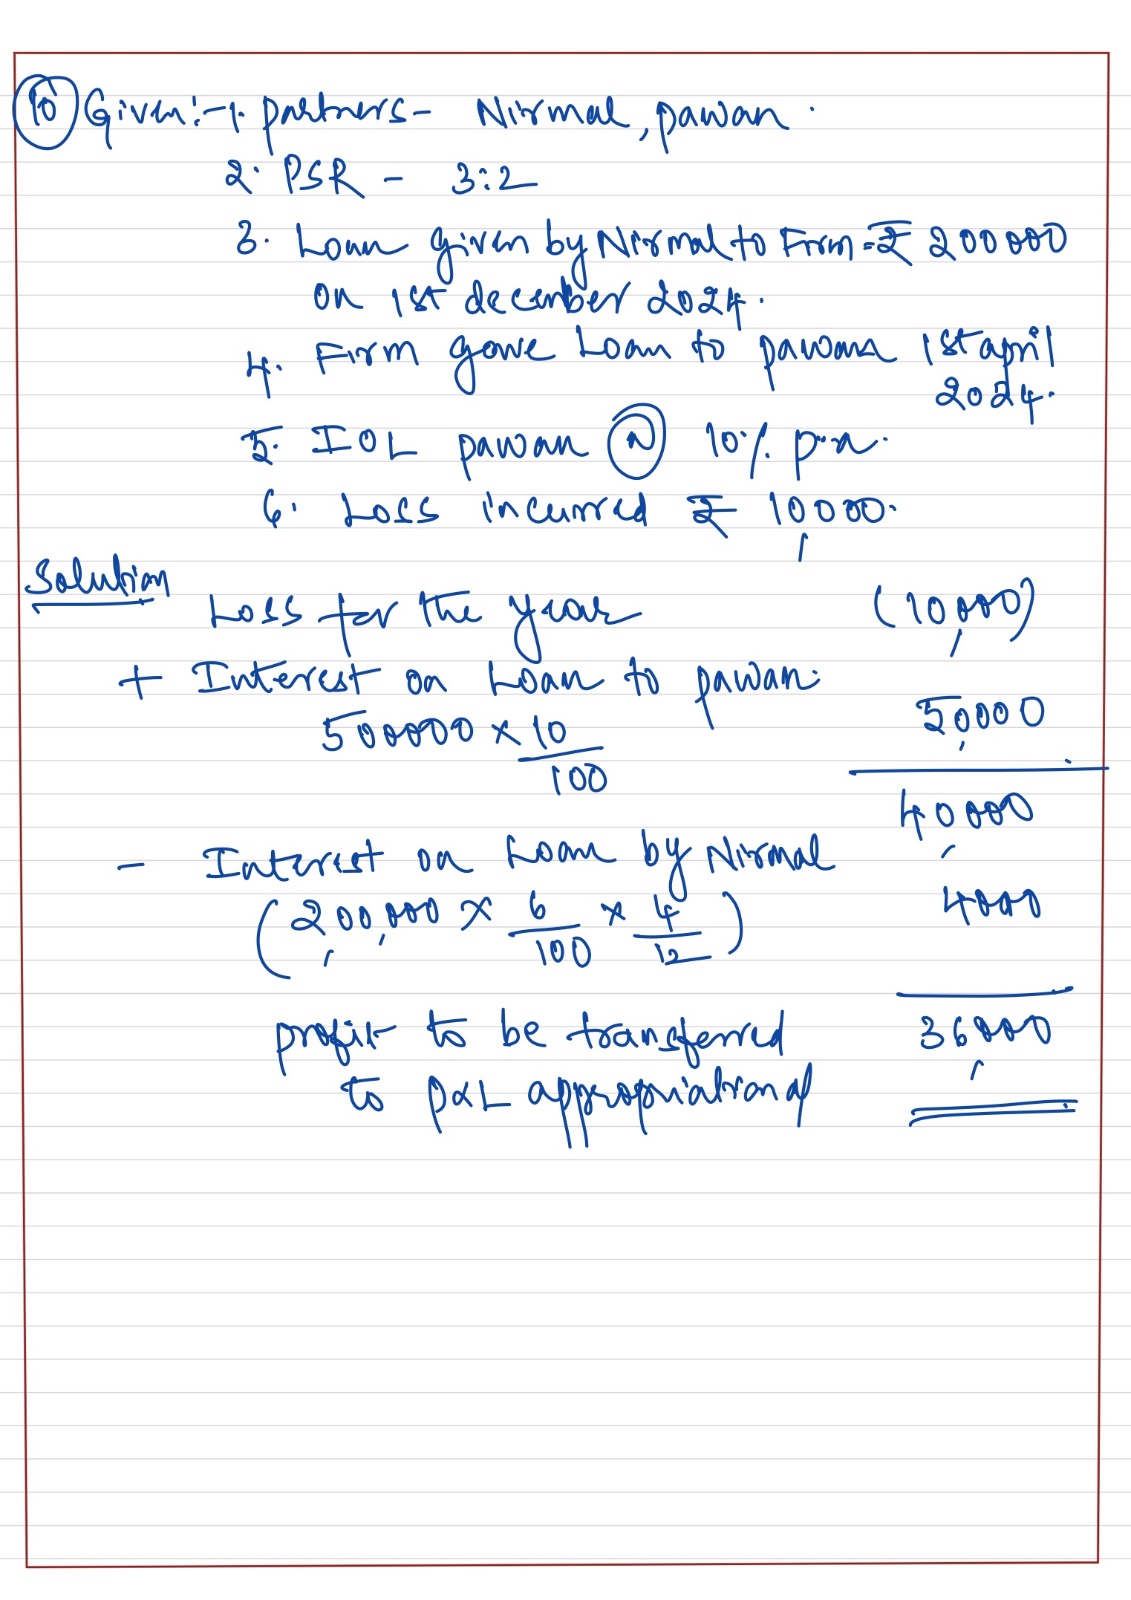 10 Given:- 1. partners - Nirmal, pawan.
2. PSR - 3:2
3. Loan given by Nirmal to Firm = ₹ 200000
on 1st december 2024.
4. Firm gave Loan to pawan 1st april
2024.
5. IOL pawan @ 10% p.a.
6. Loss incurred ₹ 10,000.
Solution
Loss for the year (10,000)
+ Interest on Loan to pawan.
500000 × 10/100 50,000
40,000
- Interest on Loan by Nirmal
(2,00,000 × 6/100 × 4/12) 4000
profit to be transferred 36,000
to P&L appropriation a/